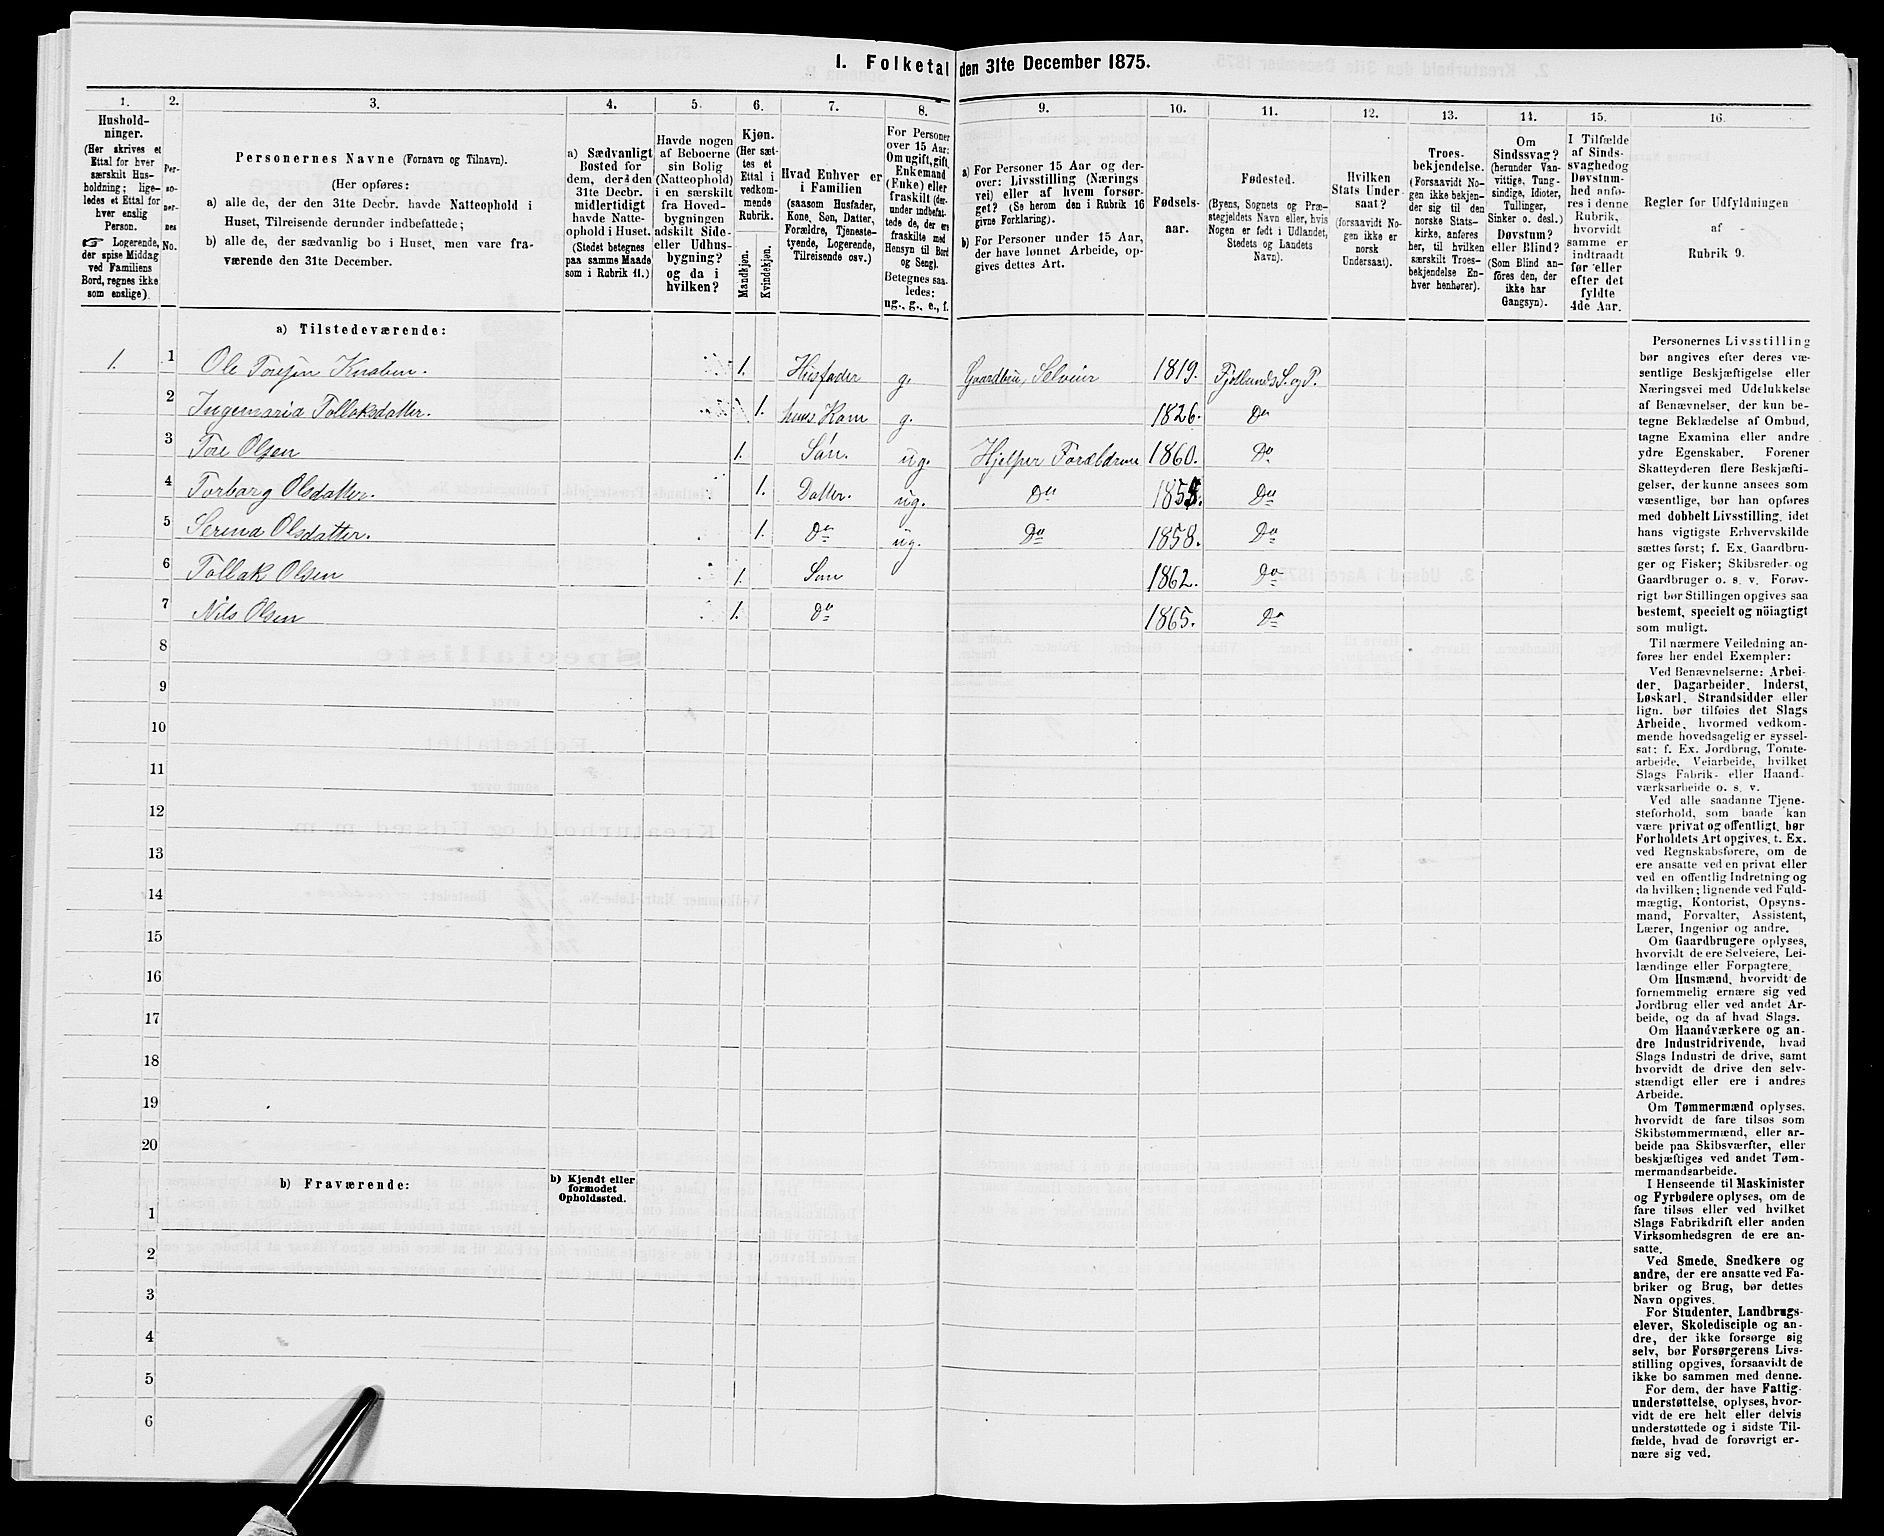 I. Folketal den 31te December 1875.
1. 2. 3. 4. 5. 6. 7. 8. 9. 10. 11. 12. 13. 14. 15. 16.
Hushold-
ninger.
(Her skrives et
Ettal for hver
særskilt Hus-
holdning; lige-
ledes et Ettal for
hver enslig
Person.
☞ Logerende,
der spise Middag
ved Familiens
Bord, regnes ikke
som enslige).
Per-
so-
ner-
nes
No.
Personernes Navne (Fornavn og Tilnavn).
(Her opføres:
a) alle de, der den 31te Decbr. havde Natteophold i
Huset, Tilreisende derunder indbefattede;
b) alle de, der sædvanlig bo i Huset, men vare fra-
værende den 31te December.
a) Sædvanligt
Bosted for
dem, der den
31te Decbr.
midlertidigt
havde Natte-
ophold i Huset.
(Stedet betegnes
paa samme Maade
som i Rubrik 11.)
Havde nogen
af Beboerne
sin Bolig
(Natteophold)
i en særskilt
fra Hoved-
bygningen
adskilt Side-
eller Udhus-
bygning?
og da i
hvilken?
Kjøn.
(Her sæt-
tes et
Ettal i
vedkom-
mende
Rubrik.
Mandkjøn.
Kvindekjøn.
Hvad Enhver er
i Familien
(saasom Husfader,
Kone, Søn, Datter,
Forældre, Tjeneste-
tyende, Logerende,
Tilreisende osv.)
For Personer
over 15 Aar:
Om ugift, gift,
Enkemand
(Enke) eller
fraskilt (der-
under indbefat-
tede de, der ere
fraskilte med
Hensyn til Bord
og Seng).
Betegnes saa-
ledes:
ug., g., e., f.
a) For Personer 15 Aar og der-
over: Livsstilling (Nærings-
vei) eller af hvem forsør-
get? (Se herom den i Rubrik 16
givne Forklaring).
b) For Personer under 15 Aar,
der have lønnet Arbeide, op-
gives dettes Art.
Fødsels-
aar.
Fødested.
(Byens, Sognets og Præ-
stegjeldets Navn eller, hvis
Nogen er født i Udlandet,
Stedets og Landets
Navn).
Hvilken
Stats Under-
saat?
(forsaavidt No-
gen ikke er
norsk
Undersaat).
Troes-
bekjendelse.
(Forsaavidt No-
gen ikke bekjen-
der sig til den
norske Stats-
kirke, anføres
her, til hvilken
særskilt Troes-
bekjendelse En-
hver henhører).
Om
Sindssvag?
(herunder Van-
vittige, Tung-
sindige, Idioter,
Tullinger,
Sinker o. desl.)
Døvstum?
eller Blind?
(Som Blind an-
føres den, der
ikke har
Gangsyn).
I Tilfælde
af Sinds-
svaghed og
Døvstum-
hed anfø-
res i denne
Rubrik,
hvorvidt
samme er
indtraadt
før eller
efter det
fyldte
4de Aar.
Regler for Udfyldningen
af
Rubrik 9.
a) Tilstedeværende:
1. 1 Ole Torejsen Knaben. 1. Husfader g. Gaardbru, Selveier 1819. Fjotlunds S. og P.
2 Ingemaria Tollaksdatter. 1. hans Kom g. 1826. Do
3 Tore Olsen 1. Søn. ug. Hjelper Forældrene 1860. Do
4 Torborg Olsdatter. 1. Datter. ug. Do 1855. Do
5 Serina Olsdatter. 1. Do ug. Do 1858. Do
6 Tollak Olsen 1. Søn 1862. Do
7 Nils Olsen 1. Do 1865. Do
8
9
10
11
12
13
14
15
16
17
18
19
20
b) Fraværende:
b) Kjendt eller
formodet
Opholdssted.
1
2
3
4
5
6
Personernes Livsstilling
bør angives efter deres væ-
sentlige Beskjæftigelse eller
Næringsvei med Udelukkelse
af Benævnelser, der kun be-
tegne Beklædelse af Ombud,
tagne Examina eller andre
ydre Egenskaber. Forener
Skatteyderen flere Beskjæfti-
gelser, der kunne ansees som
væsentlige, bør han opføres
med dobbelt Livsstilling, idet
hans vigtigste Erhvervskilde
sættes først; f. Ex. Gaardbru-
ger og Fisker; Skibsreder og
Gaardbruger o. s. v. Forøv-
rigt bør Stillingen opgives saa
bestemt, specielt og nöiagtigt
som muligt.
Til nærmere Veiledning an-
føres her endel Exempler:
Ved Benævnelserne: Arbei-
der, Dagarbeider, Inderst,
Løskarl, Strandsidder eller
lign. bør tilføies det Slags
Arbeide, hvormed vedkom-
mende hovedsagelig er syssel-
sat: f. Ex. Jordbrug, Tomte-
arbeide, Veiarbeide, hvilket
Slags Fabrik- eller Haand-
værksarbeide o. s. v.
Ved alle saadanne Tjene-
steforhold, som baade kan
være privat og offentligt, bør
Forholdets Art opgives, t. Ex.
ved Regnskabsførere, om de
ere ansatte ved en privat eller
ved en offentlig Indretning og
da hvilken; lignende ved Fuld-
mægtig, Kontorist, Opsyns-
mand, Forvalter, Assistent,
Lærer, Ingeniør og andre.
Om Gaardbrugere oplyses,
hvorvidt de ere Selveiere, Lei-
lændinge eller Forpagtere.
Om Husmænd, hvorvidt de
fornemmelig ernære sig ved
Jordbrug eller ved andet Ar-
beide, og da af hvad Slags.
Om Haandværkere og an-
dre Industridrivende, hvad
Slags Industri de drive, samt
hvorvidt de drive den selv-
stændigt eller ere i andres
Arbeide.
Om Tømmermænd oplyses,
hvorvidt de fare tilsøs som
Skibstømmermænd, eller ar-
beide paa Skibsværfter, eller
beskjæftiges ved andet Tøm-
mermandsarbeide.
I Henseende til Maskinister
og Fyrbødere oplyses, om de
fare tilsøs eller ved hvilket
Slags Fabrikdrift eller anden
Virksomhedsgren de ere an-
satte.
Ved Smede, Snedkere og
andre, der ere ansatte ved Fa-
briker og Brug, bør dettes
Navn opgives.
For Studenter, Landbrugs-
elever, Skoledisciple og an-
dre, der ikke forsørge sig
selv, bør Forsørgerens Livs-
stilling opgives, forsaavidt de
ikke bo sammen med denne.
For dem, der have Fattig-
understøttelse, oplyses, hvor-
vidt de ere helt eller delvis
understøttede og i sidste Til-
fælde, hvad de forøvrigt er-
nære sig ved.